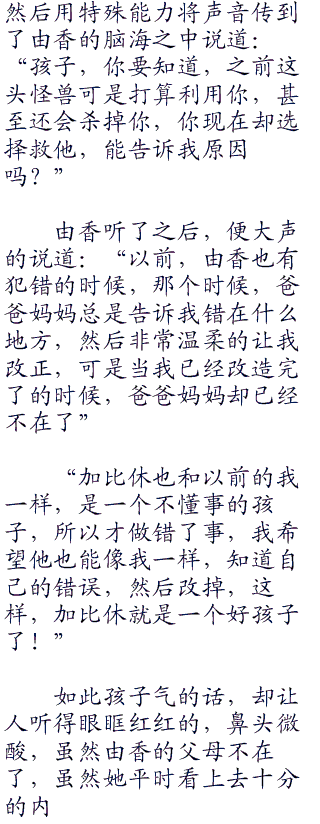 然后用特殊能力将声音传到
了由香的脑海之中说道：
“孩子，你要知道，之前这
头怪兽可是打算利用你，甚
至还会杀掉你，你现在却选
择救他，能告诉我原因
吗？”
由香听了之后，便大声
的说道：“以前，由香也有
犯错的时候，那个时候，爸
爸妈妈总是告诉我错在什么
地方，然后非常温柔的让我
改正，可是当我已经改造完
了的时候，爸爸妈妈却已经
不在了”
“加比休也和以前的我
一样，是一个不懂事的孩
子，所以才做错了事，我希
望他也能像我一样，知道自
己的错误，然后改掉，这
样，加比休就是一个好孩子
了！”
如此孩子气的话，却让
人听得眼眶红红的，鼻头微
酸，虽然由香的父母不在
了，虽然她平时看上去十分
的内